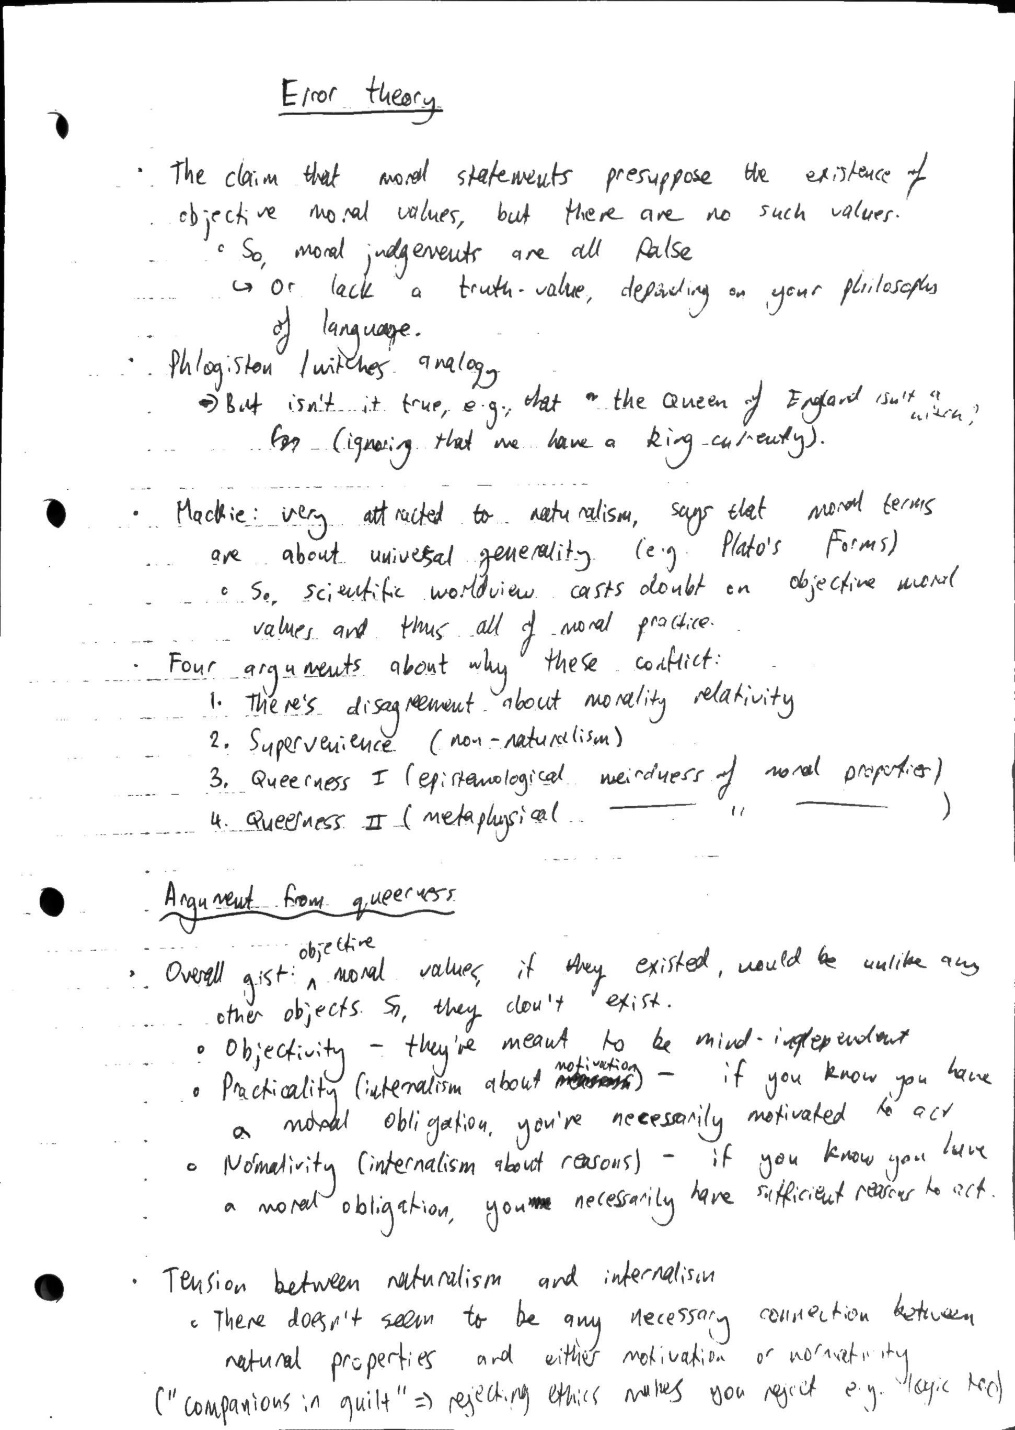 Error theory
· The claim that moral statements presuppose the existence of
objective moral values, but there are no such values.
° So, moral judgements are all false
↳ Or lack a truth-value, depending on your philosophy
of language.
· Phlogiston / witches analogy
⇒ But isn't it true, e.g., that the Queen of England isn't a witch?
(ignoring that we have a king currently).
· Mackie: very attracted to naturalism, says that moral terms
are about universal generality (e.g. Plato's Forms)
° So, scientific worldview casts doubt on objective moral
values and thus all of moral practice.
· Four arguments about why these conflict:
1. There's disagreement about morality relativity
2. Supervenience (non-naturalism)
3. Queerness I (epistemological weirdness of moral properties)
4. Queerness II (metaphysical —— " ——)
Argument from queerness
· Overall gist: objective moral values, if they existed, would be unlike any
other objects. So, they don't exist.
° Objectivity - they're meant to be mind-independent
° Practicality (internalism about motivation) - if you know you have
a moral obligation, you're necessarily motivated to act
° Normativity (internalism about reasons) - if you know you have
a moral obligation, you necessarily have sufficient reasons to act.
· Tension between naturalism and internalism
° There doesn't seem to be any necessary connection between
natural properties and either motivation or normativity
("companions in guilt" ⇒ rejecting ethics makes you reject e.g. logic too)